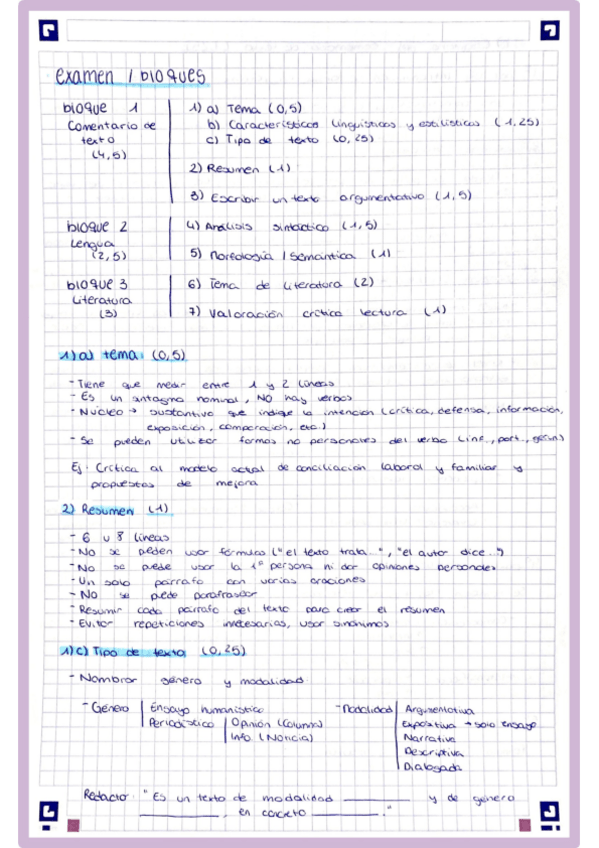 examen / bloques
bloque 1
Comentario de
texto
(4,5)
1) a) Tema (0,5)
b) Características lingüísticas y estilísticas (1,25)
c) Tipo de texto (0,25)
2) Resumen (1)
3) Escribir un texto argumentativo (1,5)
bloque 2
Lengua
(2,5)
4) Análisis sintáctico (1,5)
5) Morfología / Semántica (1)
bloque 3
Literatura
(3)
6) Tema de Literatura (2)
7) Valoración crítica lectura (1)
1) a) tema: (0,5)
- Tiene que medir entre 1 y 2 líneas
- Es un sintagma nominal, NO hay verbos
- Núcleo → sustantivo que indique la intención (crítica, defensa, información,
exposición, comparación, etc.)
- Se pueden utilizar formas no personales del verbo (inf., part., gerun)
Ej: Crítica al modelo actual de conciliación laboral y familiar y
propuestas de mejora
2) Resumen (1)
- 6 u 8 líneas
- No se peden usar fórmulas ("el texto trata...", "el autor dice...")
- No se puede usar la 1ª persona ni dar opiniones personales
- Un solo párrafo con varias oraciones
- No se puede parafrasear
- Resumir cada párrafo del texto para crear el resumen
- Evitar repeticiones innecesarias, usar sinónimos
1) C) Tipo de texto (0,25)
- Nombrar género y modalidad
- Género
Ensayo humanístico
Periodístico
Opinión (Columna)
Info (Noticia)
- Modalidad
Argumentativa
Expositiva → solo ensayo
Narrativa
Descriptiva
Dialogada
Redacto: "Es un texto de modalidad ________ y de género
________, en concreto ________."